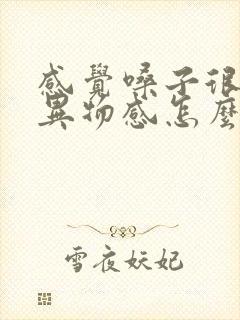 感覺嗓子很
異物感怎麼
雪夜妖妃